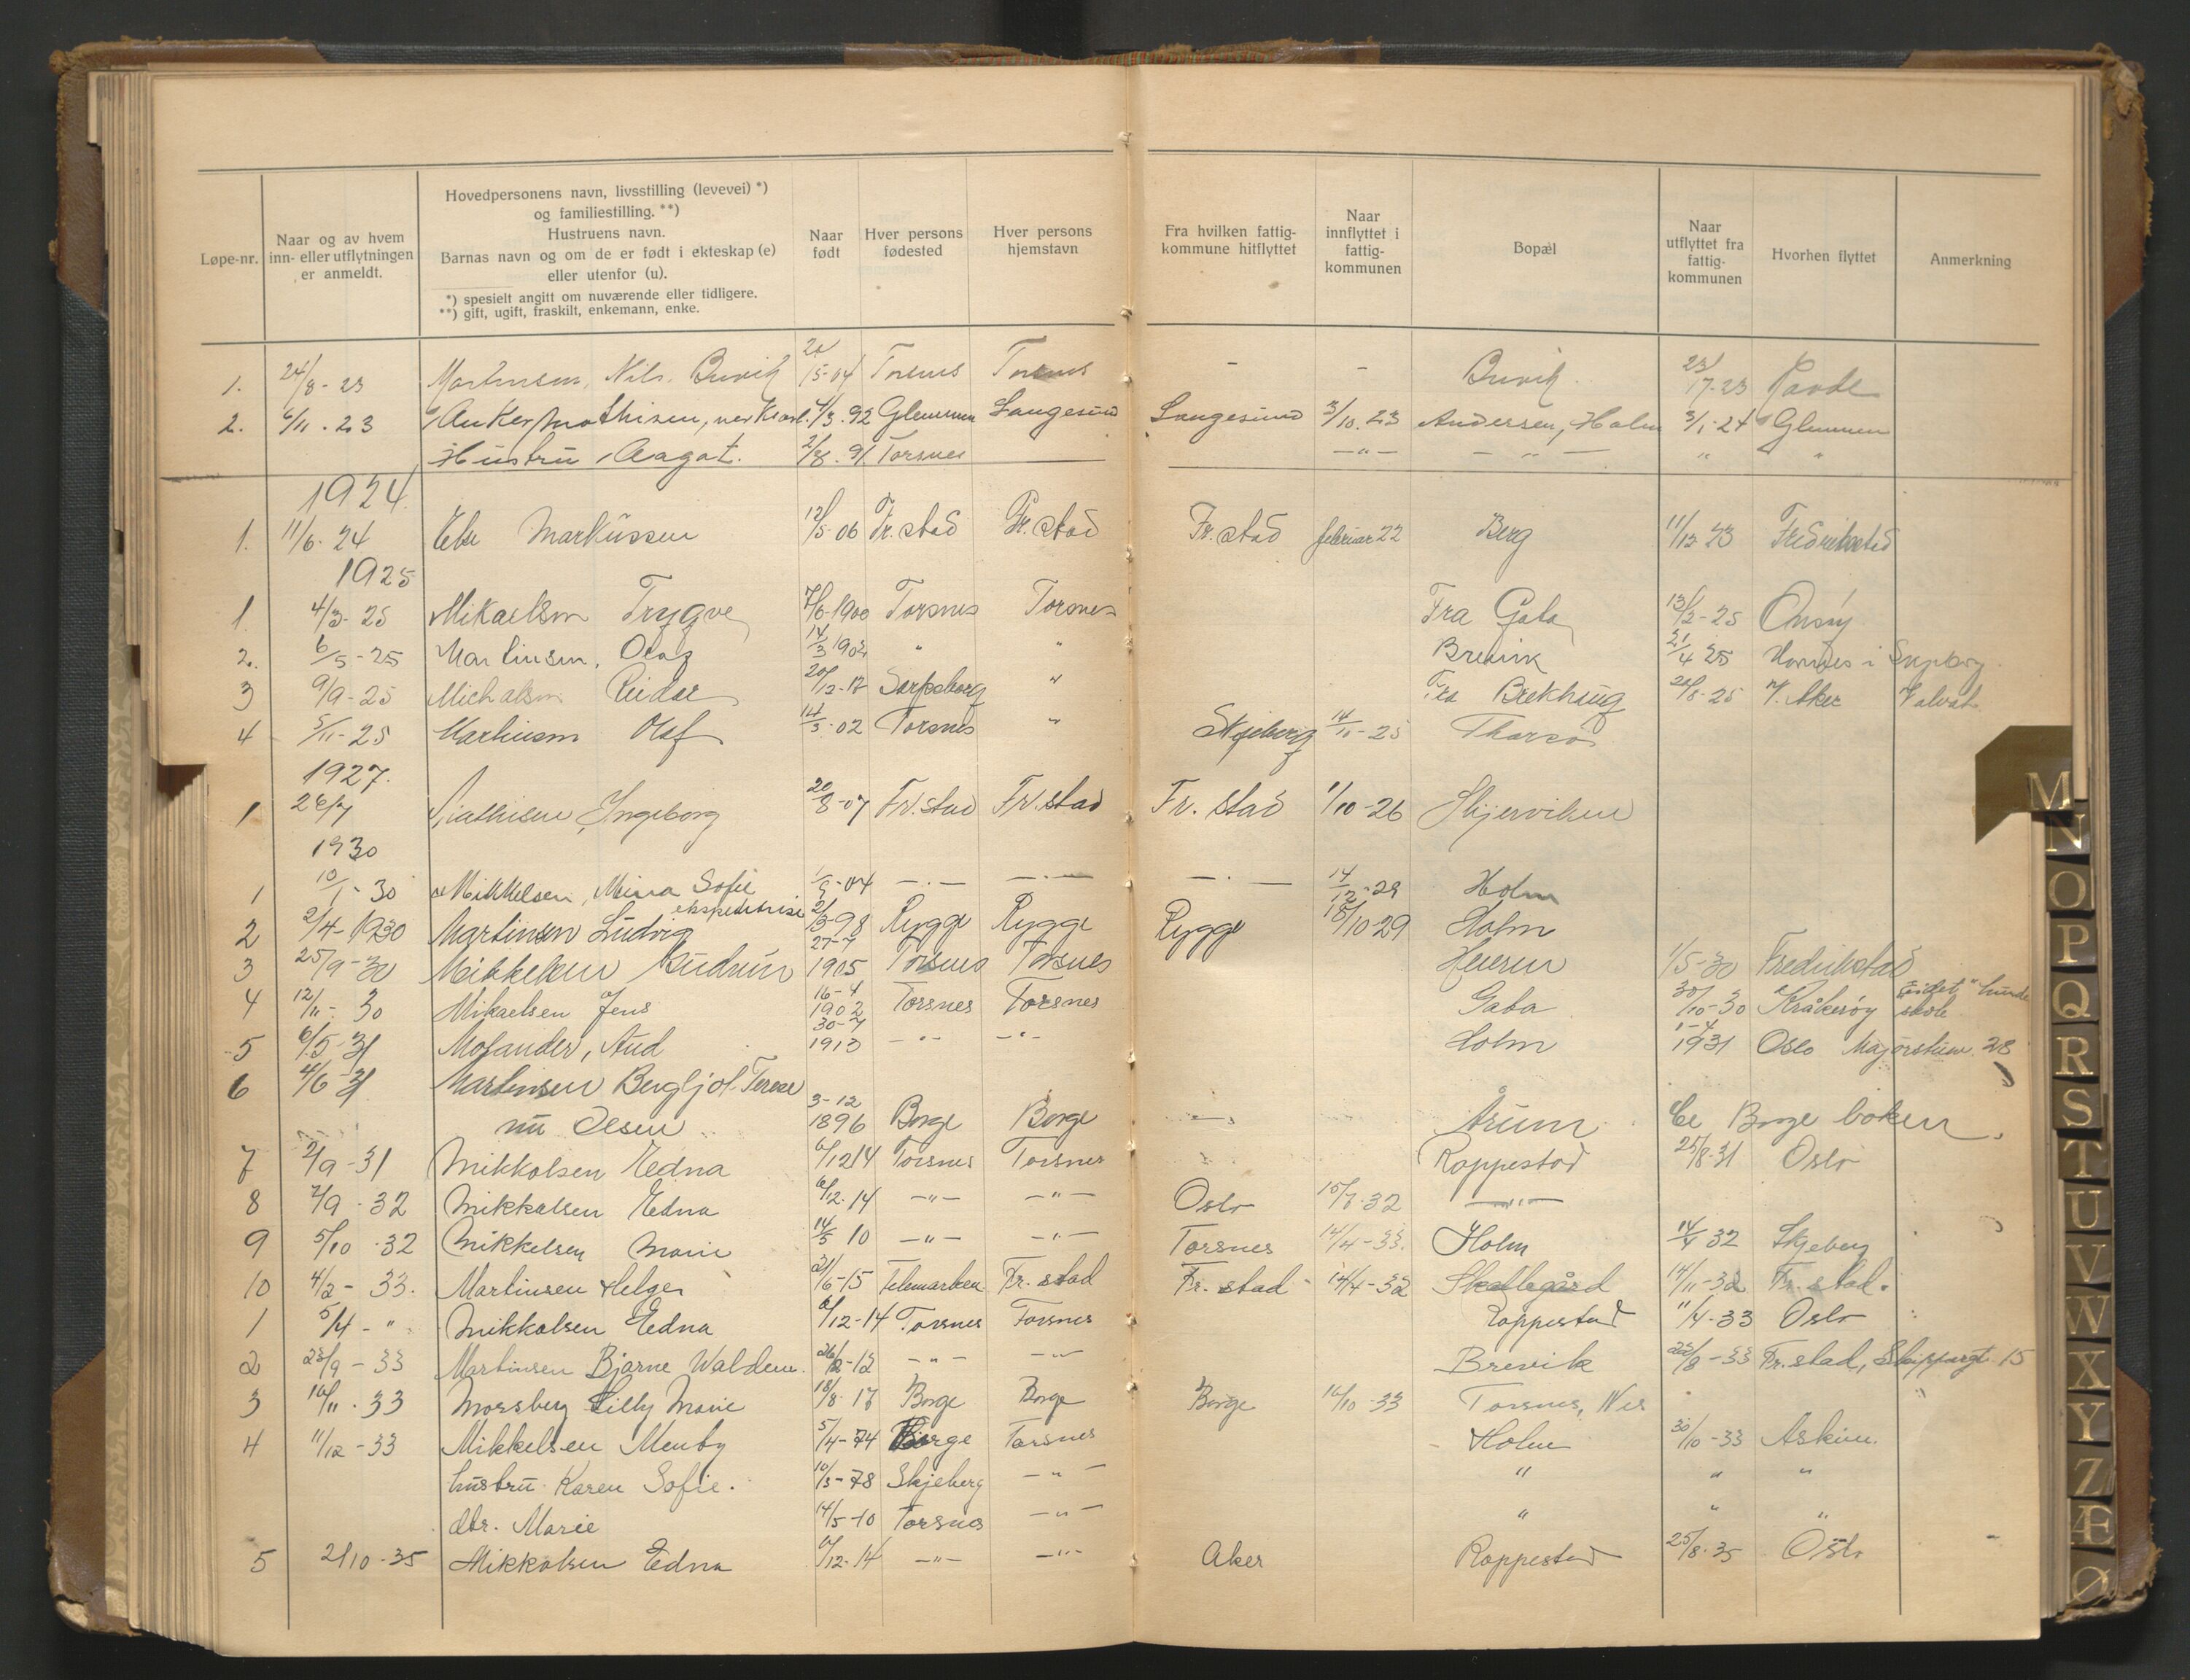 Løpe-nr.
Naar og av hvem inn- eller utflytningen er anmeldt.
Hovedpersonens navn, livsstilling (levevei) *)
og familiestilling. **)
Hustruens navn.
Barnas navn og om de er født i ekteskap (e)
eller utenfor (u).
*) spesielt angitt om nuværende eller tidligere.
**) gift, ugift, fraskilt, enkemann, enke.
Naar født
Hver persons fødested
Hver persons hjemstavn
Fra hvilken fattig-kommune hitflyttet
Naar innflyttet i fattig-kommunen
Bopæl
Naar utflyttet fra fattig-kommunen
Hvorhen flyttet
Anmerkning
1. 24/8-23 Martinsen, Nils. Buvik Torsnes Torsnes - - Buvik
2. 6/11.23 Anker Mathisen, 4/3.92 Glemmen Langesund Langesund 3/10.23 Andersen, Holm 3/1-24 Glemmen
Hustru Aagot. 2/8.91 Torsnes -"- -"- " "
1924.
1. 11/6-24 Else Markussen 12/5-06 Fr.stad Fr.stad Fr.stad februar 22 Berg 11/12 23 Fredrikstad
1925
1. 4/3-25 Mikaelsen Trygve 7/6-1900 Torsnes Torsnes Fra Gaba 13/2-25 Onsøy
2. 6/5-25 Martinsen, Olaf 14/3 1902 " " Brevik 21/4 25
3 9/9-25 Michalsen Reidar 20/12-17 Sarpsborg " Fra Brekhaug 20/8-25 V. Aker
4 5/11-25 Martinsen Olaf 14/3-02 Torsnes " Skjeberg 14/11-25 Thorsø
1927.
1 Mathisen, Ingeborg 20/8-07 Fr.stad Fr.stad Fr.stad 1/10-26 Skjerviken
1930
1 10/1-30 Mikkelsen, Mina Sofie 1/9-04 -"- -"- -"- 14/12-29 Holm
ekspeditrise
2 2/4-1930 Martinsen Ludvig 2/3-98 Rygge Rygge Rygge 18/10-29 Holm
3 25/9-30 Mikkelsen Gudrun 27-7 1905 Torsnes Torsnes Heieren 1/5-30 Fredrikstad
4 12/11-30 Mikaelsen Jens 16-4 1902 Torsnes Torsnes Gaba 30/10-30 Kråkerøy skole
5 6/5-31 Molander, Aud 30-7 1913 -"- -"- Holm 1-4 1931 Oslo Majorstuen 28
6 4/6-31 Martinsen Bergljot Terese
nu Olsen 3-12 1896 Borge Borge -"- Årum Se Borge boken.
7 2/9-31 Mikkalsen Edna 6/12 14 Torsnes Torsnes Roppestad 25/8-31 Oslo
8 7/9-32 Mikkalsen Edna 6/12.14 -"- -"- Oslo 15/7-32 -"-
9 5/10-32 Mikkelsen Marie 14/5 10 -"- -"- Torsnes 14/4-33. Holm 14/4 32 Skjeberg
10 4/2-33. Martinsen Helge 21/6-15 Telemarken Fr.stad Fr.stad 14/4-32 Skallegård 14/11-32 Fr.stad.
1 5/4-" Mikkalsen Edna 6/12-14 Torsnes Torsnes Roppestad 11/4-33 Oslo
2 23/9-33 Martinsen Bjarne Waldem. 26/2-12 -"- -"- Brevik 22/8-33 Fr.stad, Skippergt. 15
3 16/11.33 Morsberg Lilly Marie 18/8-17 Borge Borge Borge 16/10-33 Torsnes, Nes " "
4 11/12-33 Mikkelsen Menby 5/4-74 Borge Torsnes Holm 30/10-33 Askim.
hustru Karen Sofie. 10/3-78 Skjeberg -"- " " "
dtr. Marie 14/5-10 Torsnes -"- " " "
5 21/10-35 Mikkalsen Edna 6/12-14 -"- -"- Aker Roppestad 25/8-35 Oslo
M
N
O
P
Q
R
S
T
U
V
W
X
Y
Z
Æ
Ø